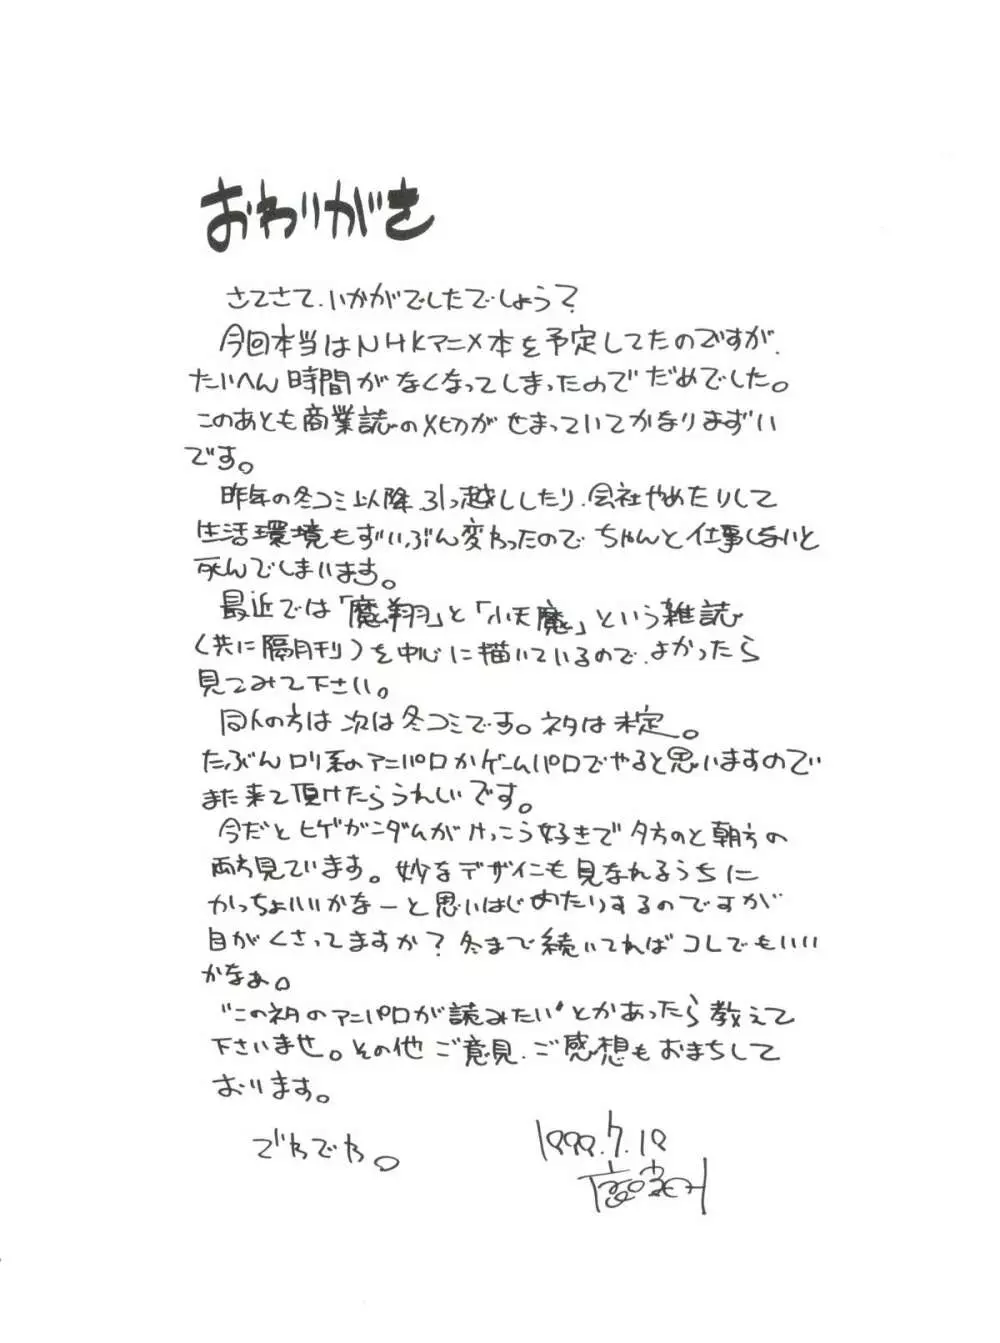 おわりがき
さてさて、いかがでしたでしょう?
今回本当はNHKアニメ本を予定してたのですが、
たいへん時間がなくなってしまったのでだめでした。
このあとも商業誌の〆切がせまっていてかなりまずい
です。
昨年の冬コミ以降、引っ越ししたり、会社やめたりして
生活環境もずいぶん変わったので ちゃんと仕事しないと
死んでしまいます。
最近では「魔翔」と「小天魔」という雑誌
(共に隔月刊)を中心に描いているので、よかったら
見てみて下さい。
同人の方は 次は冬コミです。ネタは未定。
たぶんロリ系のアニパロかゲームパロでやると思いますので
また来て頂けたらうれしいです。
今だとヒゲガンダムがけっこう好きで夕方のと朝方の
両方見ています。妙なデザインも見なれるうちに
かっちょいいかなーと思いはじめたりするのですが
目がくさってますか? 冬まで続いてれば コレでもいい
かなぁ。
"このネタのアニパロが読みたい"とかあったら教えて
下さいませ。その他 ご意見、ご感想もおまちして
おります。
でわでわ。
1999.7.19